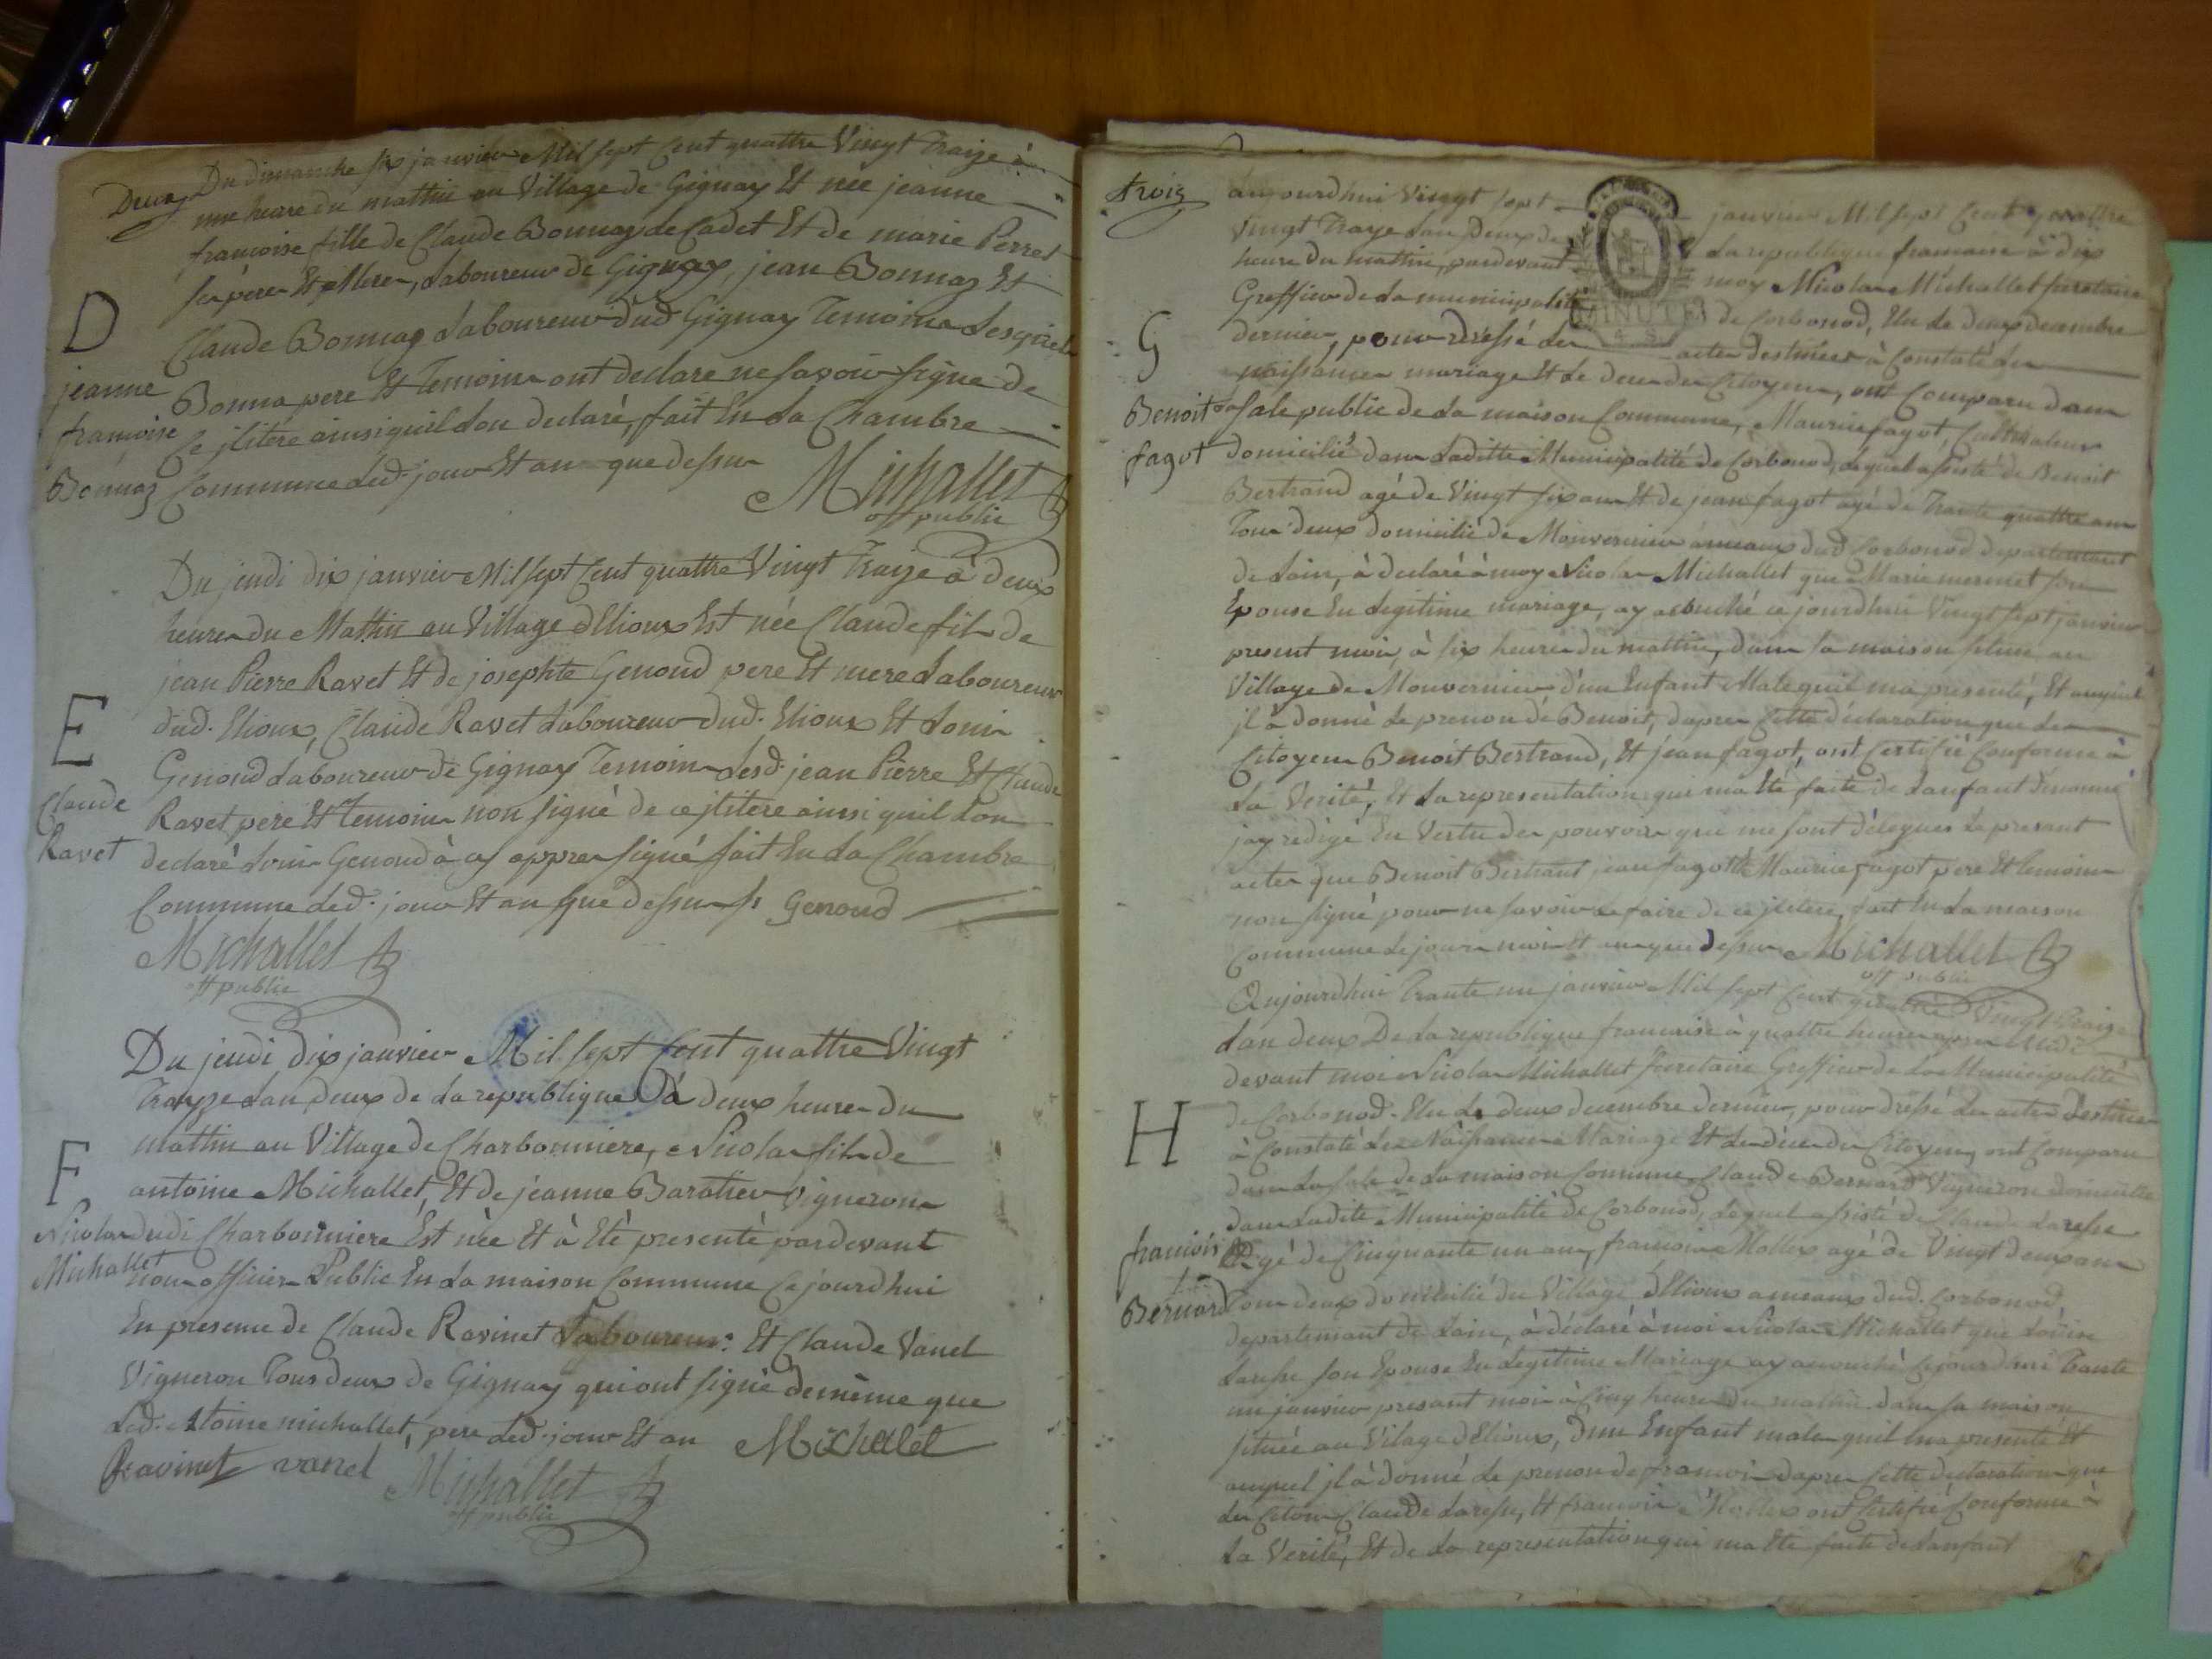 Deux
Du dimanche six janvier Mil sept Cent quattre Vingt Traize à
une heure du mattin au Village de Gignay Et née jeanne
francoise fille de Claude Bonnaz de Cadet Et de marie Perret
ses pere Et Mere, Laboureur de Gignay, jean Bonnaz Et
Claude Bonnaz Laboureur dud Gignay Temoins Lesquels
Bonna pere Et Temoins ont declaré ne savoir signe de
Ce jlitere ainsi quil lon declaré, fait En La Chambre
Commune Led. jour Et an que dessus Michallet
off public
D
jeanne
francoise
Bonnaz
Du jeudi dix janvier Mil sept Cent quattre Vingt Traize à deux
heures du Mattin au Village dElioux Est née Claude fils de
jean Pierre Ravet Et de josephte Genoud pere Et mere Laboureur
dud. Elioux, Claude Ravet Laboureur dud. Elioux Et Louis
Genoud Laboureur de Gignay Temoins Lesd. jean Pierre Et Claude
Ravet pere Et Temoins non signé de ce jlitere ainsi quil lon
declaré Louis Genoud à cy appres signé fait En La Chambre
Commune Led. jour Et an que dessus Genoud
Michallet
off public
E
Claude
Ravet
Du jeudi dix janvier Mil sept Cent quattre Vingt
Trayze Lan deux de La republique à deux heures du
mattin au Village de Charbonniere, Nicolas fils de
antoine Michallet, Et de jeanne Baratier Vignerons
dudi Charbonniere Est née Et à Eté presenté pardevant
nous officier Public En La maison Commune Cejourdhui
En presence de Claude Ravinet Laboureur: Et Claude Vanel
Vigneron Tous deux de Gignay qui ont signé de même que
Led. Atoine michallet, pere Led. jour Et an Michallet
Ravinet vanel Michallet
off public
F
Nicolas
Michallet
troiz
aujourdhui Vingt sept janvier Mil sept Cent quattre
Vingt Traze Lan Deux de La republique francaise à dix
heure du mattin, pardevant moy Nicolas Michallet secretaire
Greffier de La municipalité de Corbonod, Elu Le deux decembre
dernier, pour dressé Les actes destinées à Constaté Les
naissances mariage Et Le deces des Citoyens, ont Comparu dans
La sale public de La maison Commune, Maurice fagot, Cultivateur
domicilié dans Laditte Municipalité de Corbonod, Lequel assisté de Benoit
Bertrand agé de Vingt six ans Et de jean fagot agé de Trante quattre ans
Tous deux domicilié de Mouvernier ameaux dud Corbonod departement
de Lain, à declaré à moy Nicolas Michallet que Marie mermet son
Epouse En Legitime mariage, ay acouché ce jourdhui Vingt sept janvier
present mois, à six heures du mattin, dans sa maison situe au
Village de Mouvernier d'un Enfant Male quil ma presenté, Et auquel
jl à donné Le prenon de Benoit, dapres Cette declaration que Les
Citoyens Benoit Bertrand, Et jean fagot, ont Certifié Conforme à
La Verité, Et La representation qui ma Eté faite de Lanfant denommé
jay rédigé En Vertu des pouvoirs qui me sont délegues Le presant
actes que Benoit Bertrant jean fagot Et Maurice fagot pere Et temoins
non signé pour ne savoir Le faire de ce jlitere, fait En La maison
Commune Le jour mois Et an que dessus Michallet
off public
G
Benoit
fagot
Aujourdhui Trante un janvier Mil sept Cent quattre Vingt Traize
Lan deux De La republique francaise à quattre heures apres midi
devant moi Nicolas Michallet secretaire Greffier de La Municipalité
de Corbonod. Elu Le deux decembre dernier, pour dressé Les actes Destinés
à Constaté Les Naissances Mariage Et Le deces des Citoyens, ont Comparu
dans La sale de La maison Commune Claude Bernard Vigneron domicilie
dans Ladite Municipalité de Corbonod, Lequel assisté de Claude Laresse
Agé de Cinquante un ans, francois Mollex agé de Vingt deux ans
Tous deux domicilié du Village dElioux ameaux dud. Corbonod,
departemant de Lain, à déclaré à moi Nicolas Michallet que Louise
Laresse son Epouse En Legitime Mariage ay acouché Cejourdhui Trante
un janvier presant mois à Cinq heures du mattin dans sa maison
située au Vilage dElioux, d'un Enfant male quil ma presenté Et
auquel jl à donné Le prenon de francois dapres Cette declaration que
Les Citoiens Claude Laresse, Et francois Mollex ont Certifié Conforme à
La Verité, Et de La representation qui ma Eté faite de Lanfant
H
francois
Bernard
MINUTE